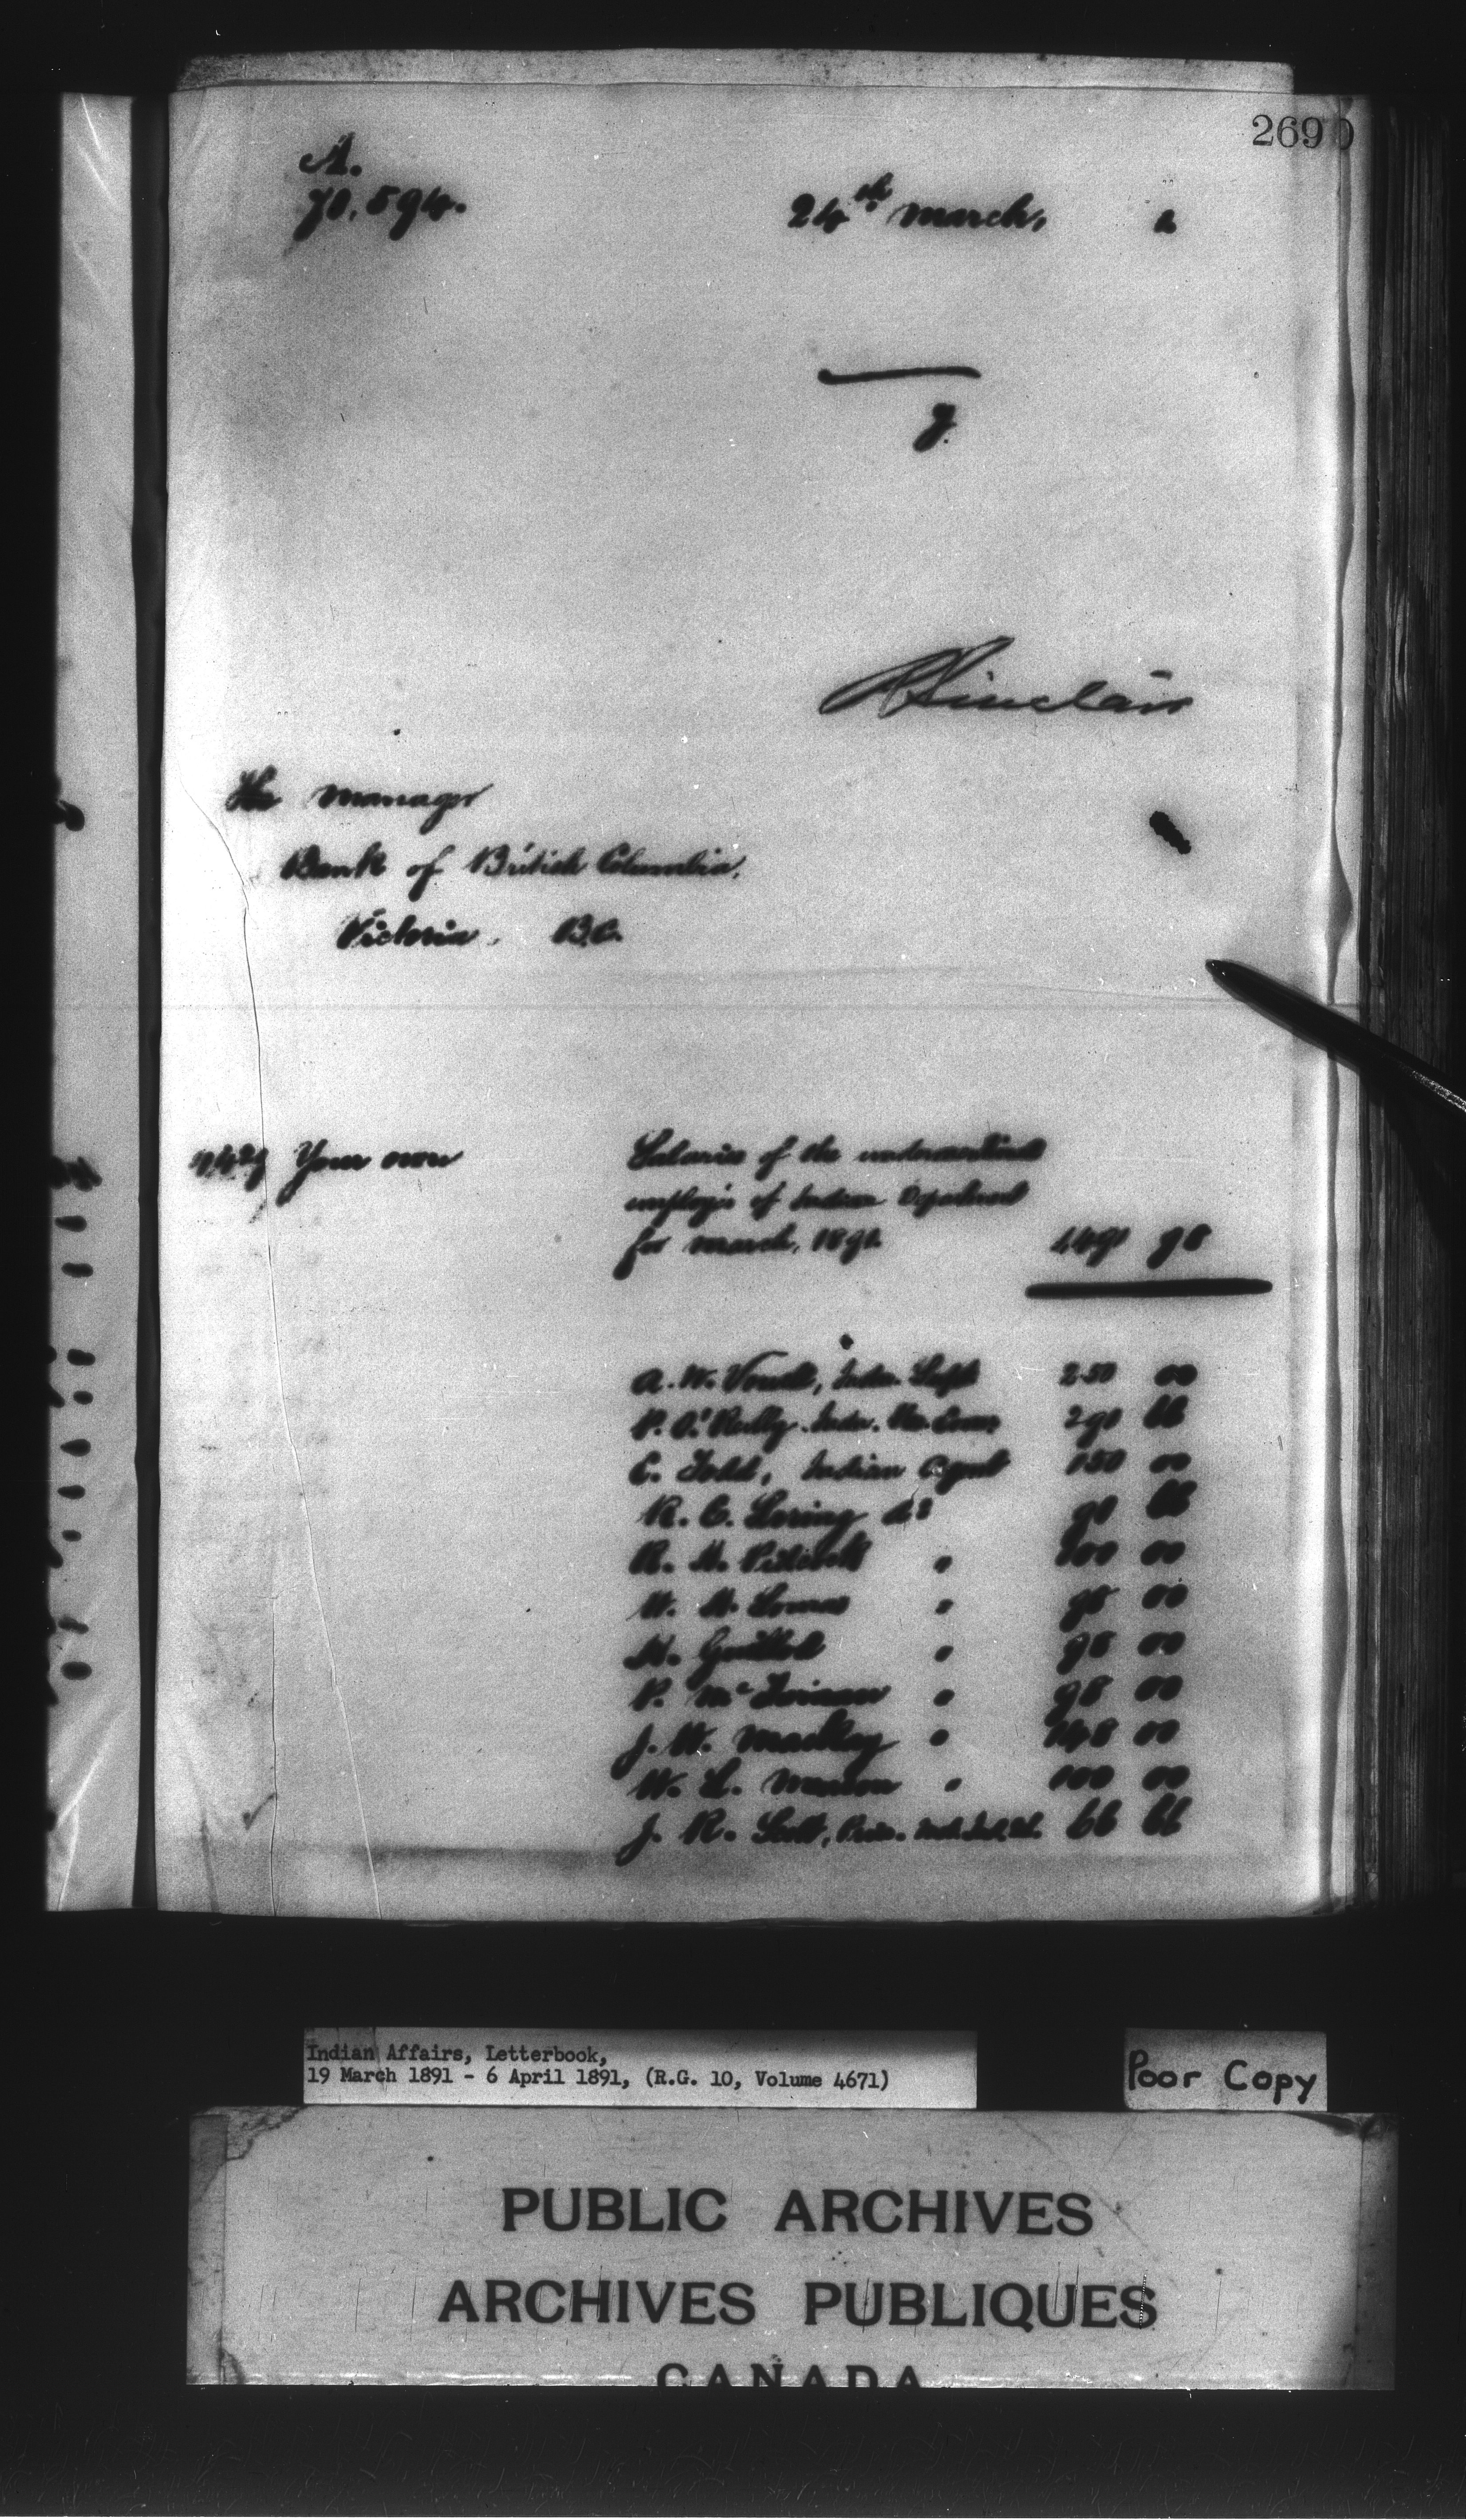 2690
A.
70,594.
24th March, 1
J.
R Sinclair
The Manager
Bank of British Columbia,
Victoria, B.C.
Your own
Salaries of the undermentioned
employés of Indian Department
for March, 1891. 1491 98
A. W. Vowell, Indn. Supt 250 00
P. O'Reilly. Indn. Re. Comr 291 66
E. Todd, Indian Agent 150 00
R. E. Loring do 91 66
R. H. Pidcock " 100 00
W. H. Lomas " 98 00
H. Guillod " 98 00
P. McTiernan " 98 00
J. W. Mackay " 148 00
W. L. Meason " 100 00
J. R. Scott, Prin. Ind. Ind. Sl. 66 66
Indian Affairs, Letterbook,
19 March 1891 - 6 April 1891, (R.G. 10, Volume 4671)
Poor Copy
PUBLIC ARCHIVES
ARCHIVES PUBLIQUES
CANADA